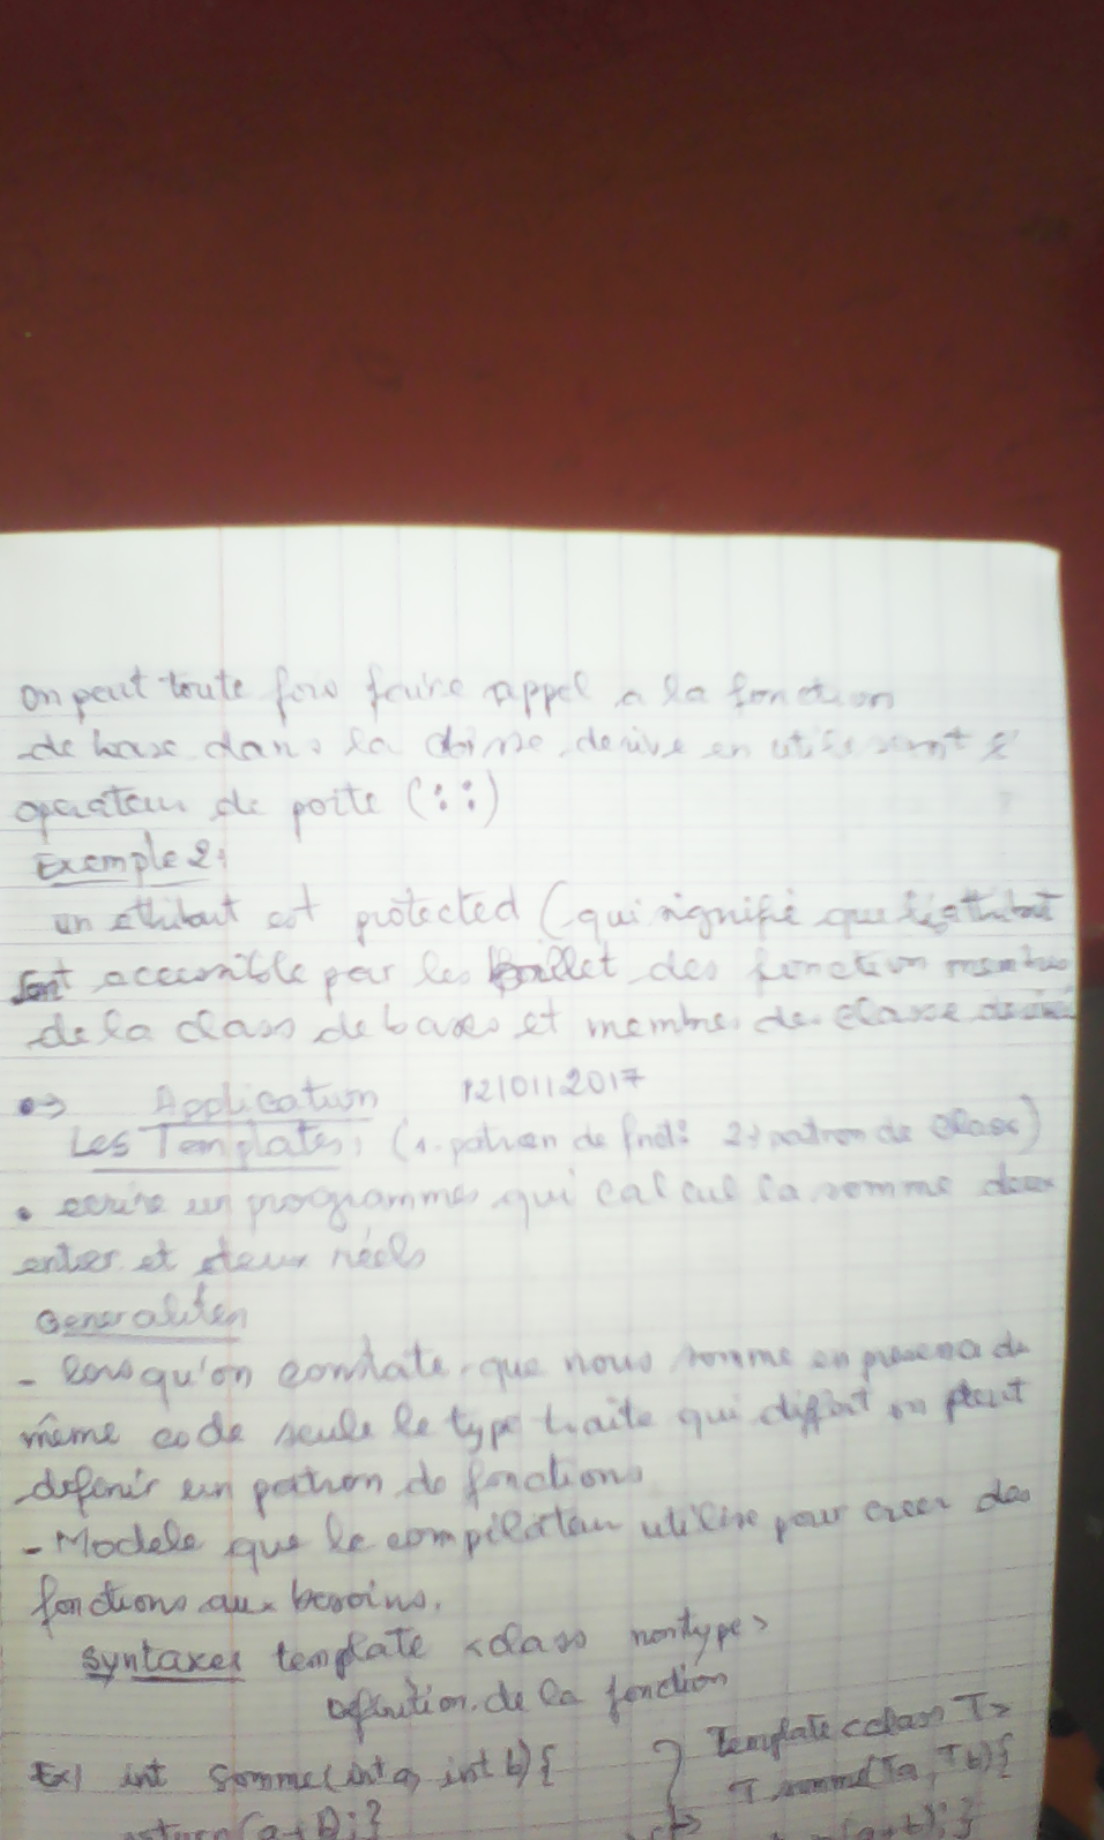 on peut toute fois faire appel a la fonction
de base dans la classe derive en utilisant l'
operateur de porte (::)
Exemple 2:
un attribut est protected (qui signifie que les attribut
sont accessible par les des fonction membres
de la class de bases et membres de classe derivé
Application 12/01/2017
Les Templates: (1. patron de fnct: 2. patron de class)
• ecrire un programmes qui calcul la somme deux
entier et deux réels
Generalités
- lorsqu'on constate que nous somme en presence de
même code seule le type traite qui differt on peut
definir un patron de fonctions
- Modele que le compilateur utilise pour creer des
fonctions aux besoins.
Syntaxes template <class nontype>
Definition de la fonction
Ex1 int somme(int a, int b){
return(a+b);}
Template <class T>
T somme(T a, T b){
(a+b);}